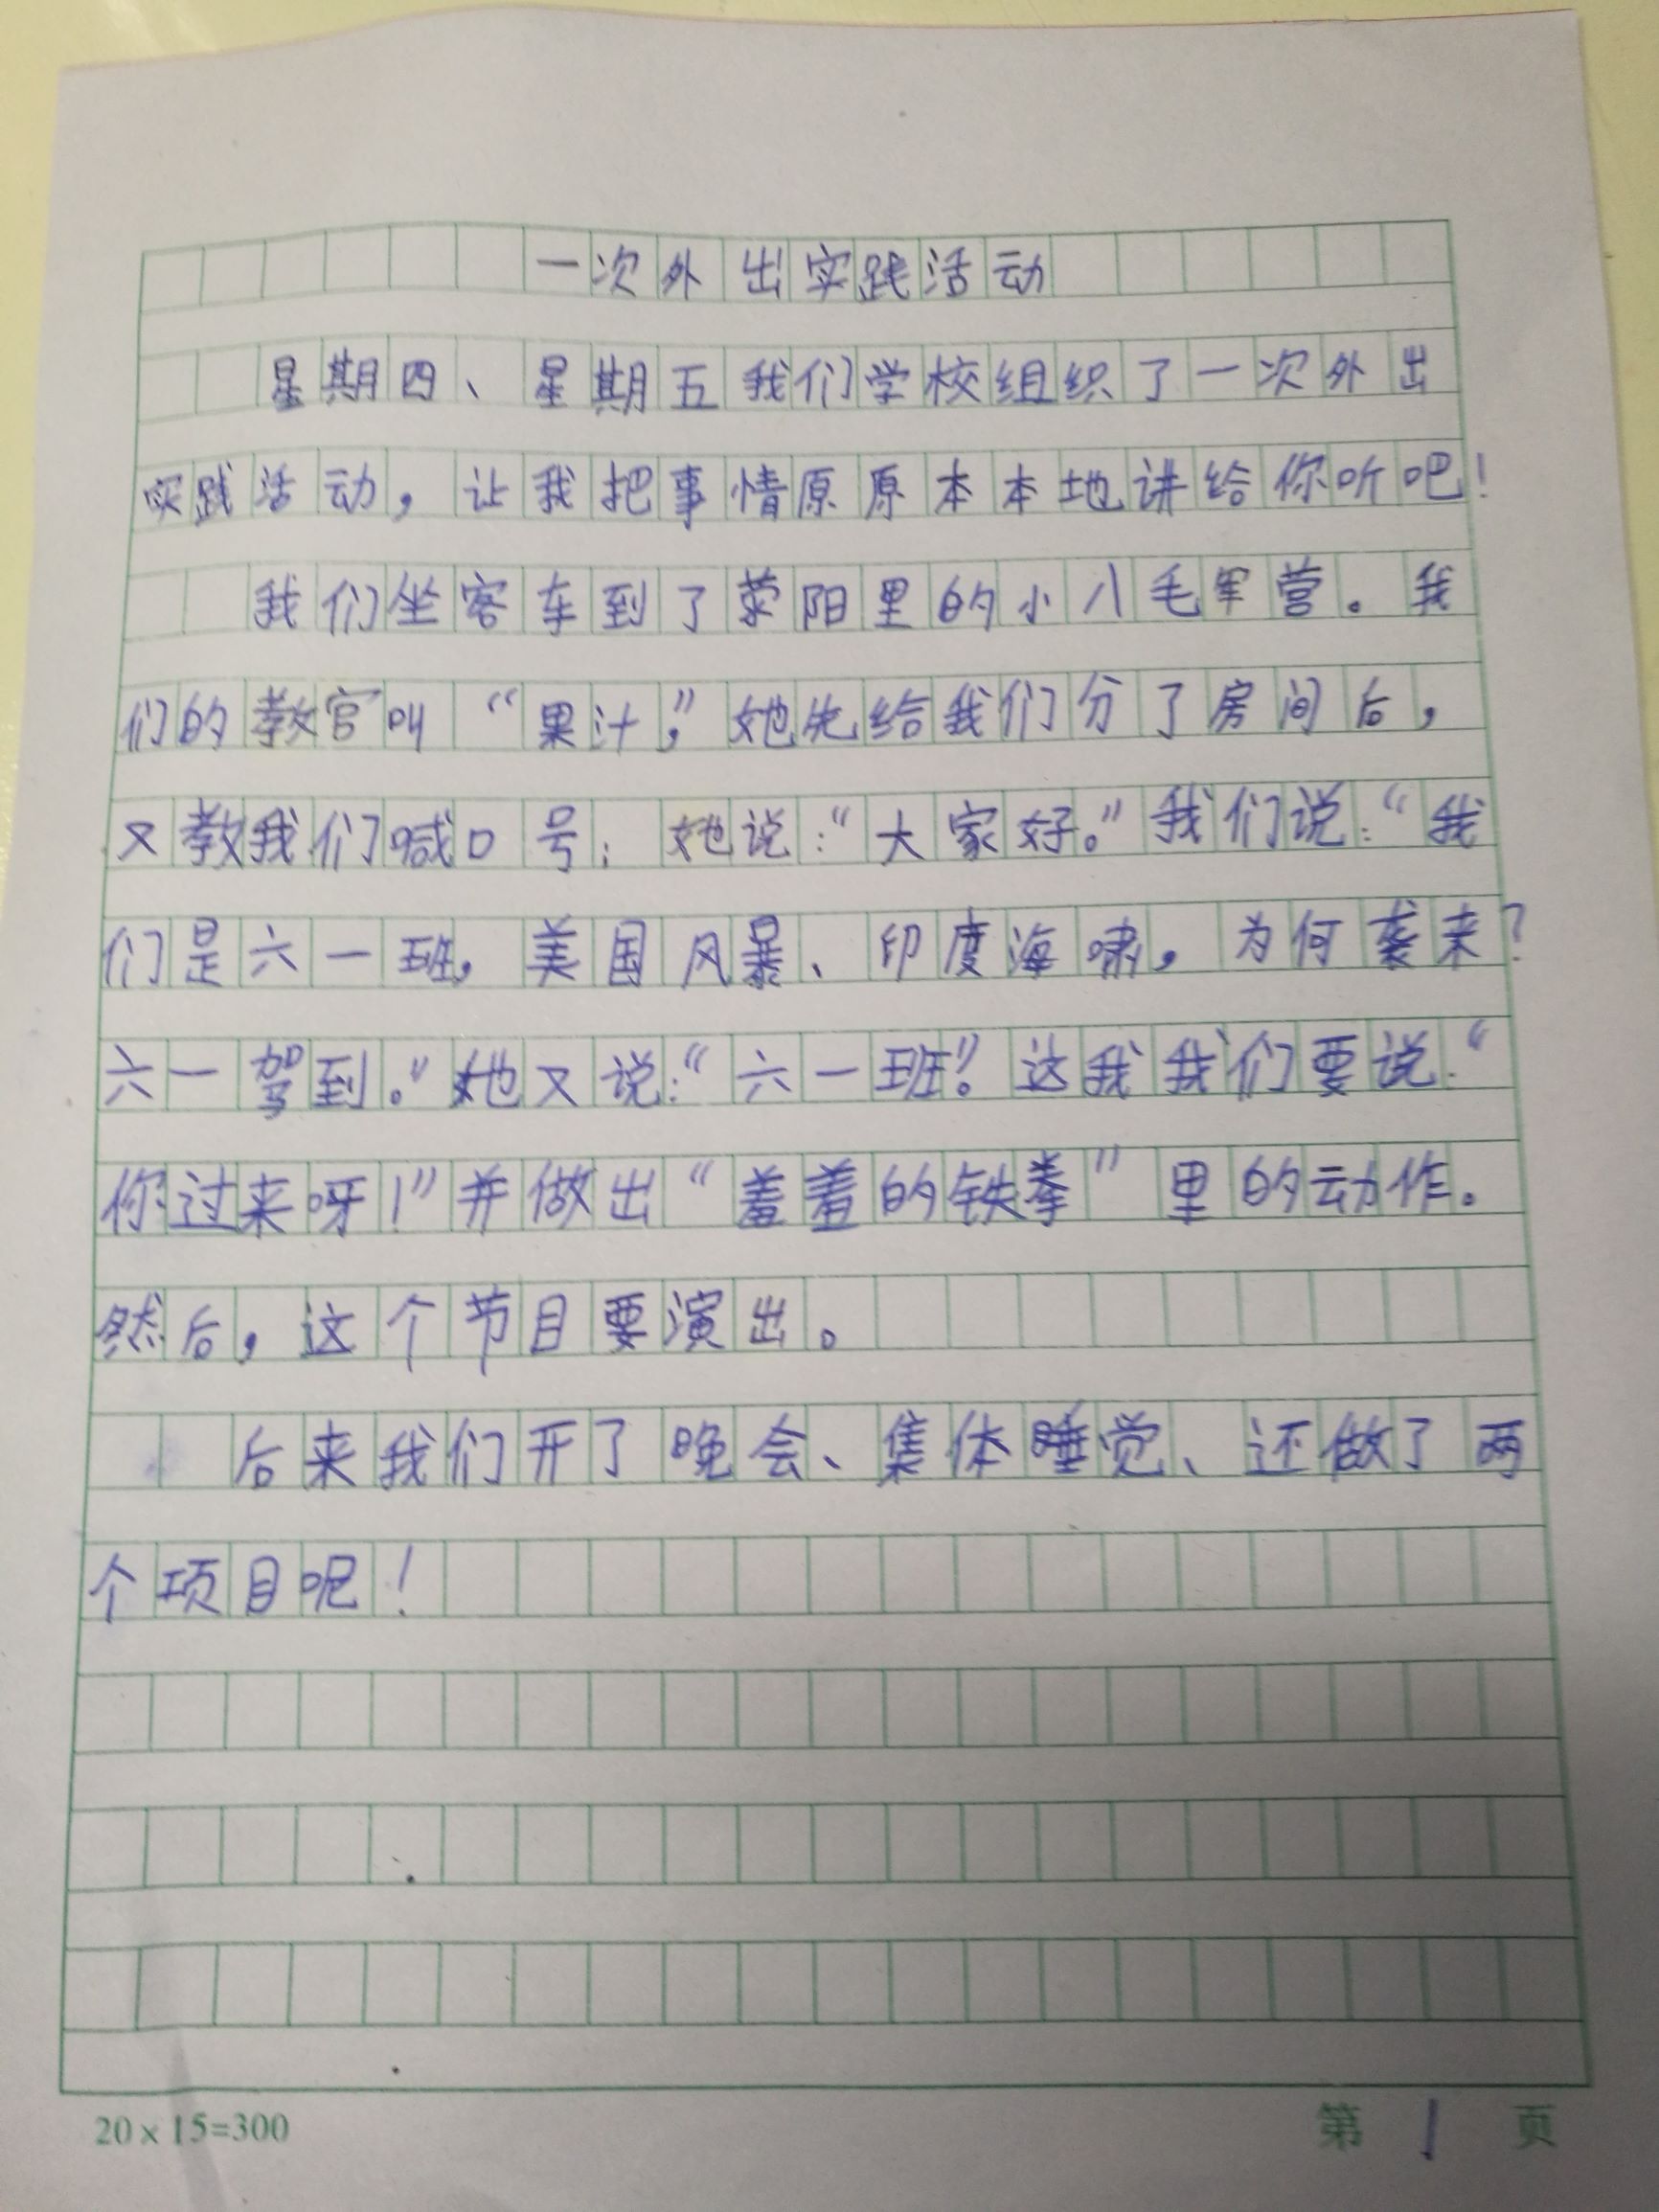 一次外出实践活动
星期四、星期五我们学校组织了一次外出
实践活动，让我把事情原原本本地讲给你听吧！
我们坐客车到了荥阳里的小八毛军营。我
们的教官叫“果汁，”她先给我们分了房间后，
又教我们喊口号：她说：“大家好。”我们说：“我
们是六一班，美国风暴、印度海啸，为何袭来？
六一驾到。”她又说：“六一班！”这我我们要说：“
你过来呀！”并做出“羞羞的铁拳”里的动作。
然后，这个节目要演出。
后来我们开了晚会、集体睡觉、还做了两
个项目呢！
20×15=300
第 1 页